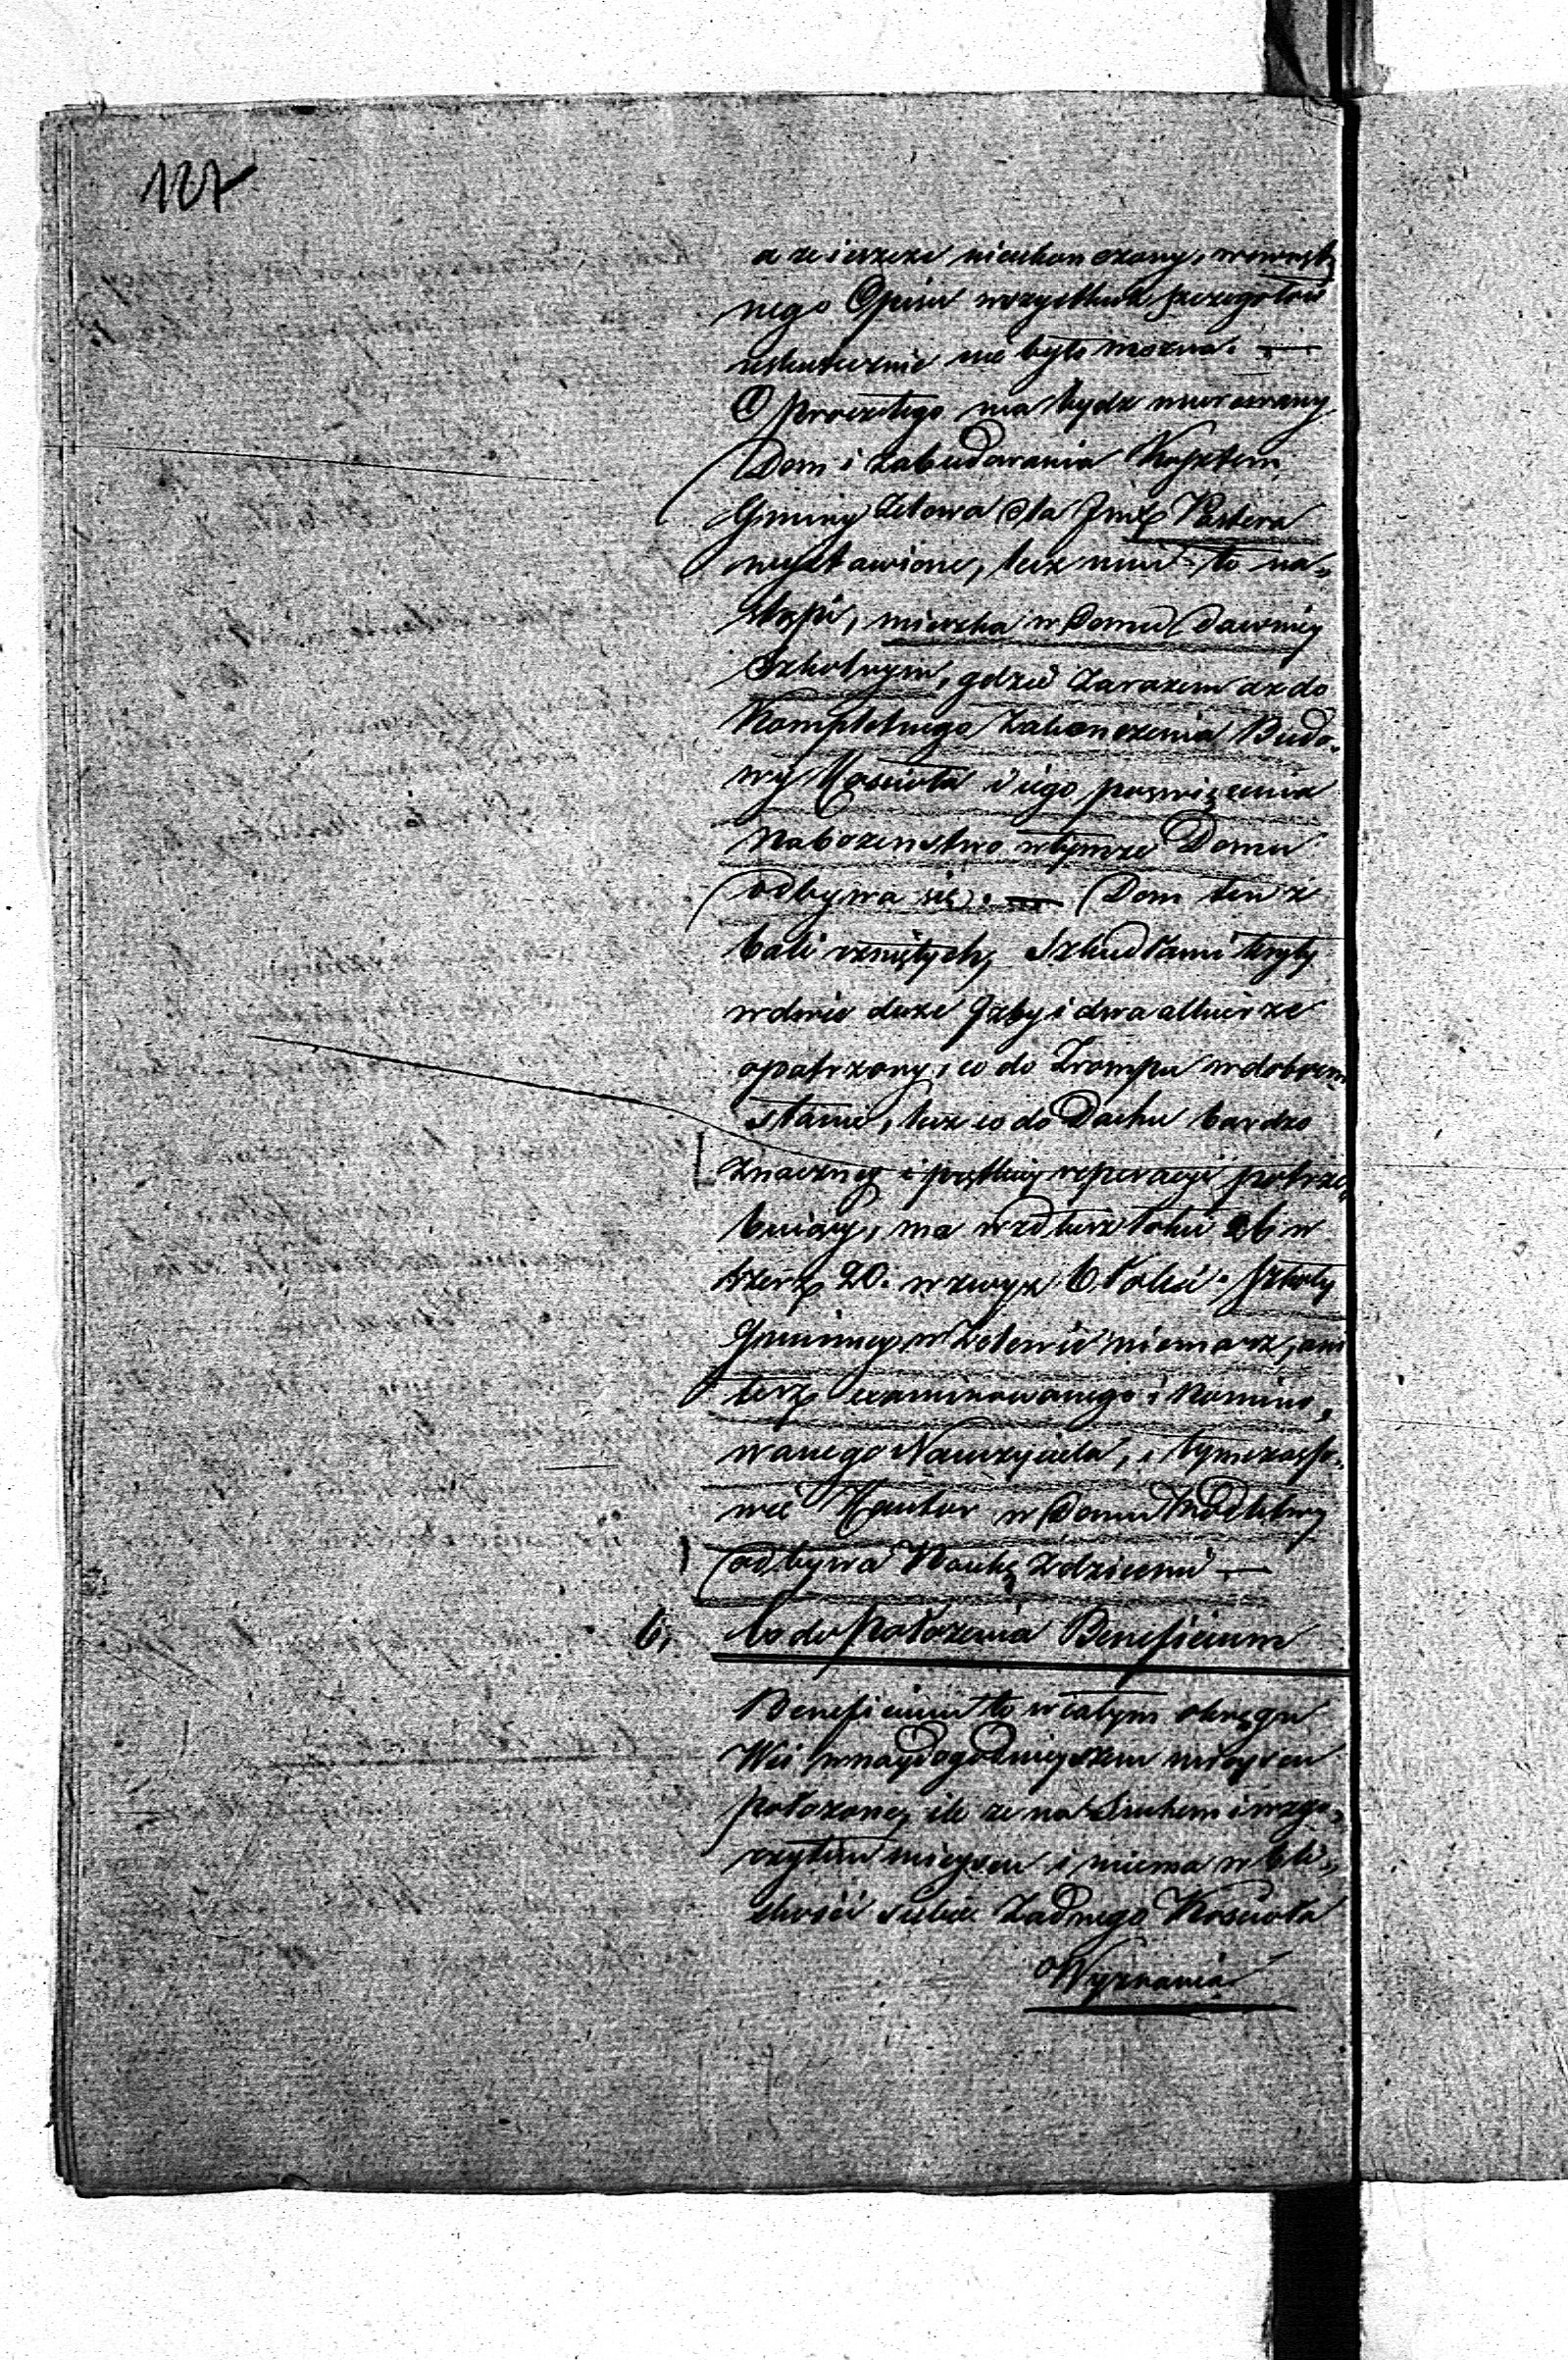 127
a ze ieszcze nieukonczony, wewnętrz
nego Opisu wszystkich szczegołów
uskutecznić nie było mozna. —
Oprocz tego ma bydz murowany
Dom i zabudowania Kosztem
Gminy Zelowa dla Pastora
wystawione, lecz nim to na„
stąpi, mieszka w Domu dawniey
Szkolnym, gdzie zarazem az do
Kompletnego Zakonczenia Budo„
wy Kościoła i iego poswięcenia
Nabozenstwo w tymze Domu
odbywa się. — Dom ten z
bali rzniętych, Szkudłami kryty
w dwie duze Izby i dwa alkierze
opatrzony, co do Zrompu w dobrem
stanie, lecz co do Dachu bardzo
znaczney i prętkiey reperacyi potrze„
buiący, ma wzdłuz łokci 26 w
szerz 20. wzwyz 6 łokci. Szkoły
Gminney w Zelowie niemasz, ani
tez examinowanego i Nomino„
wanego Nauczyciela, i tymczaso„
wie Kantor w Domu Modlitwy
odbywa Naukę z dziećmi —
6, Co do Położenia Beneficium
Beneficium to w całym okręgu
Wsi w naydogodnieyszem mieyscu
położone, ile ze na Suchem i wzgo„
rzystem mieyscu i niema w bli„
skości siebie zadnego Kościoła
Wyznania